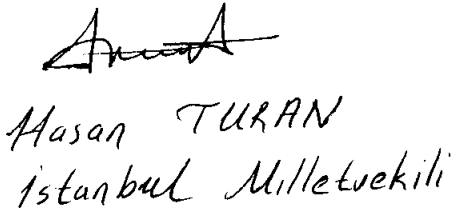 Hasan TURAN
İstanbul Milletvekili